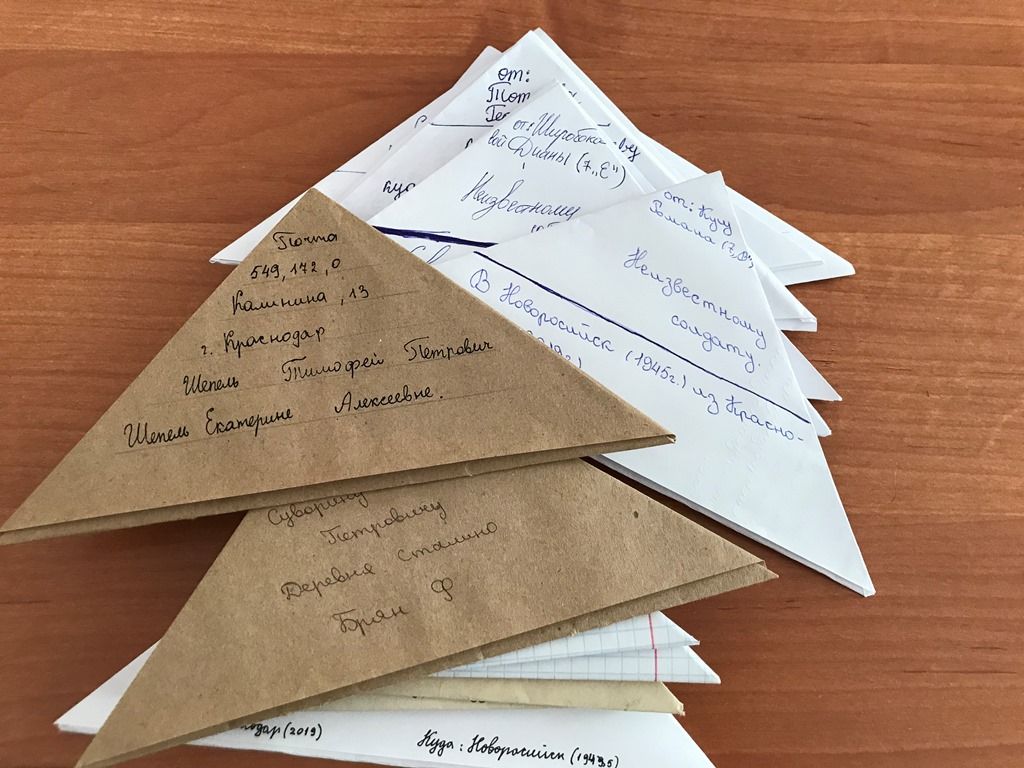 от:
от: Широбоко
вой Дианы (7„Е")
Неизвестному
от: Кучу
Романа (7„В")
Неизвестному
солдату.
В Новоросийск (1945г.) из Красно-
Почта
549,172,0
Калинина, 13
г. Краснодар
Шепель Тимофей Петрович
Шепель Екатерине Алексеевне.
Суворину
Петровичу
Деревня Сталино
Брян Ф
(2019)
Куда: Новоросийск